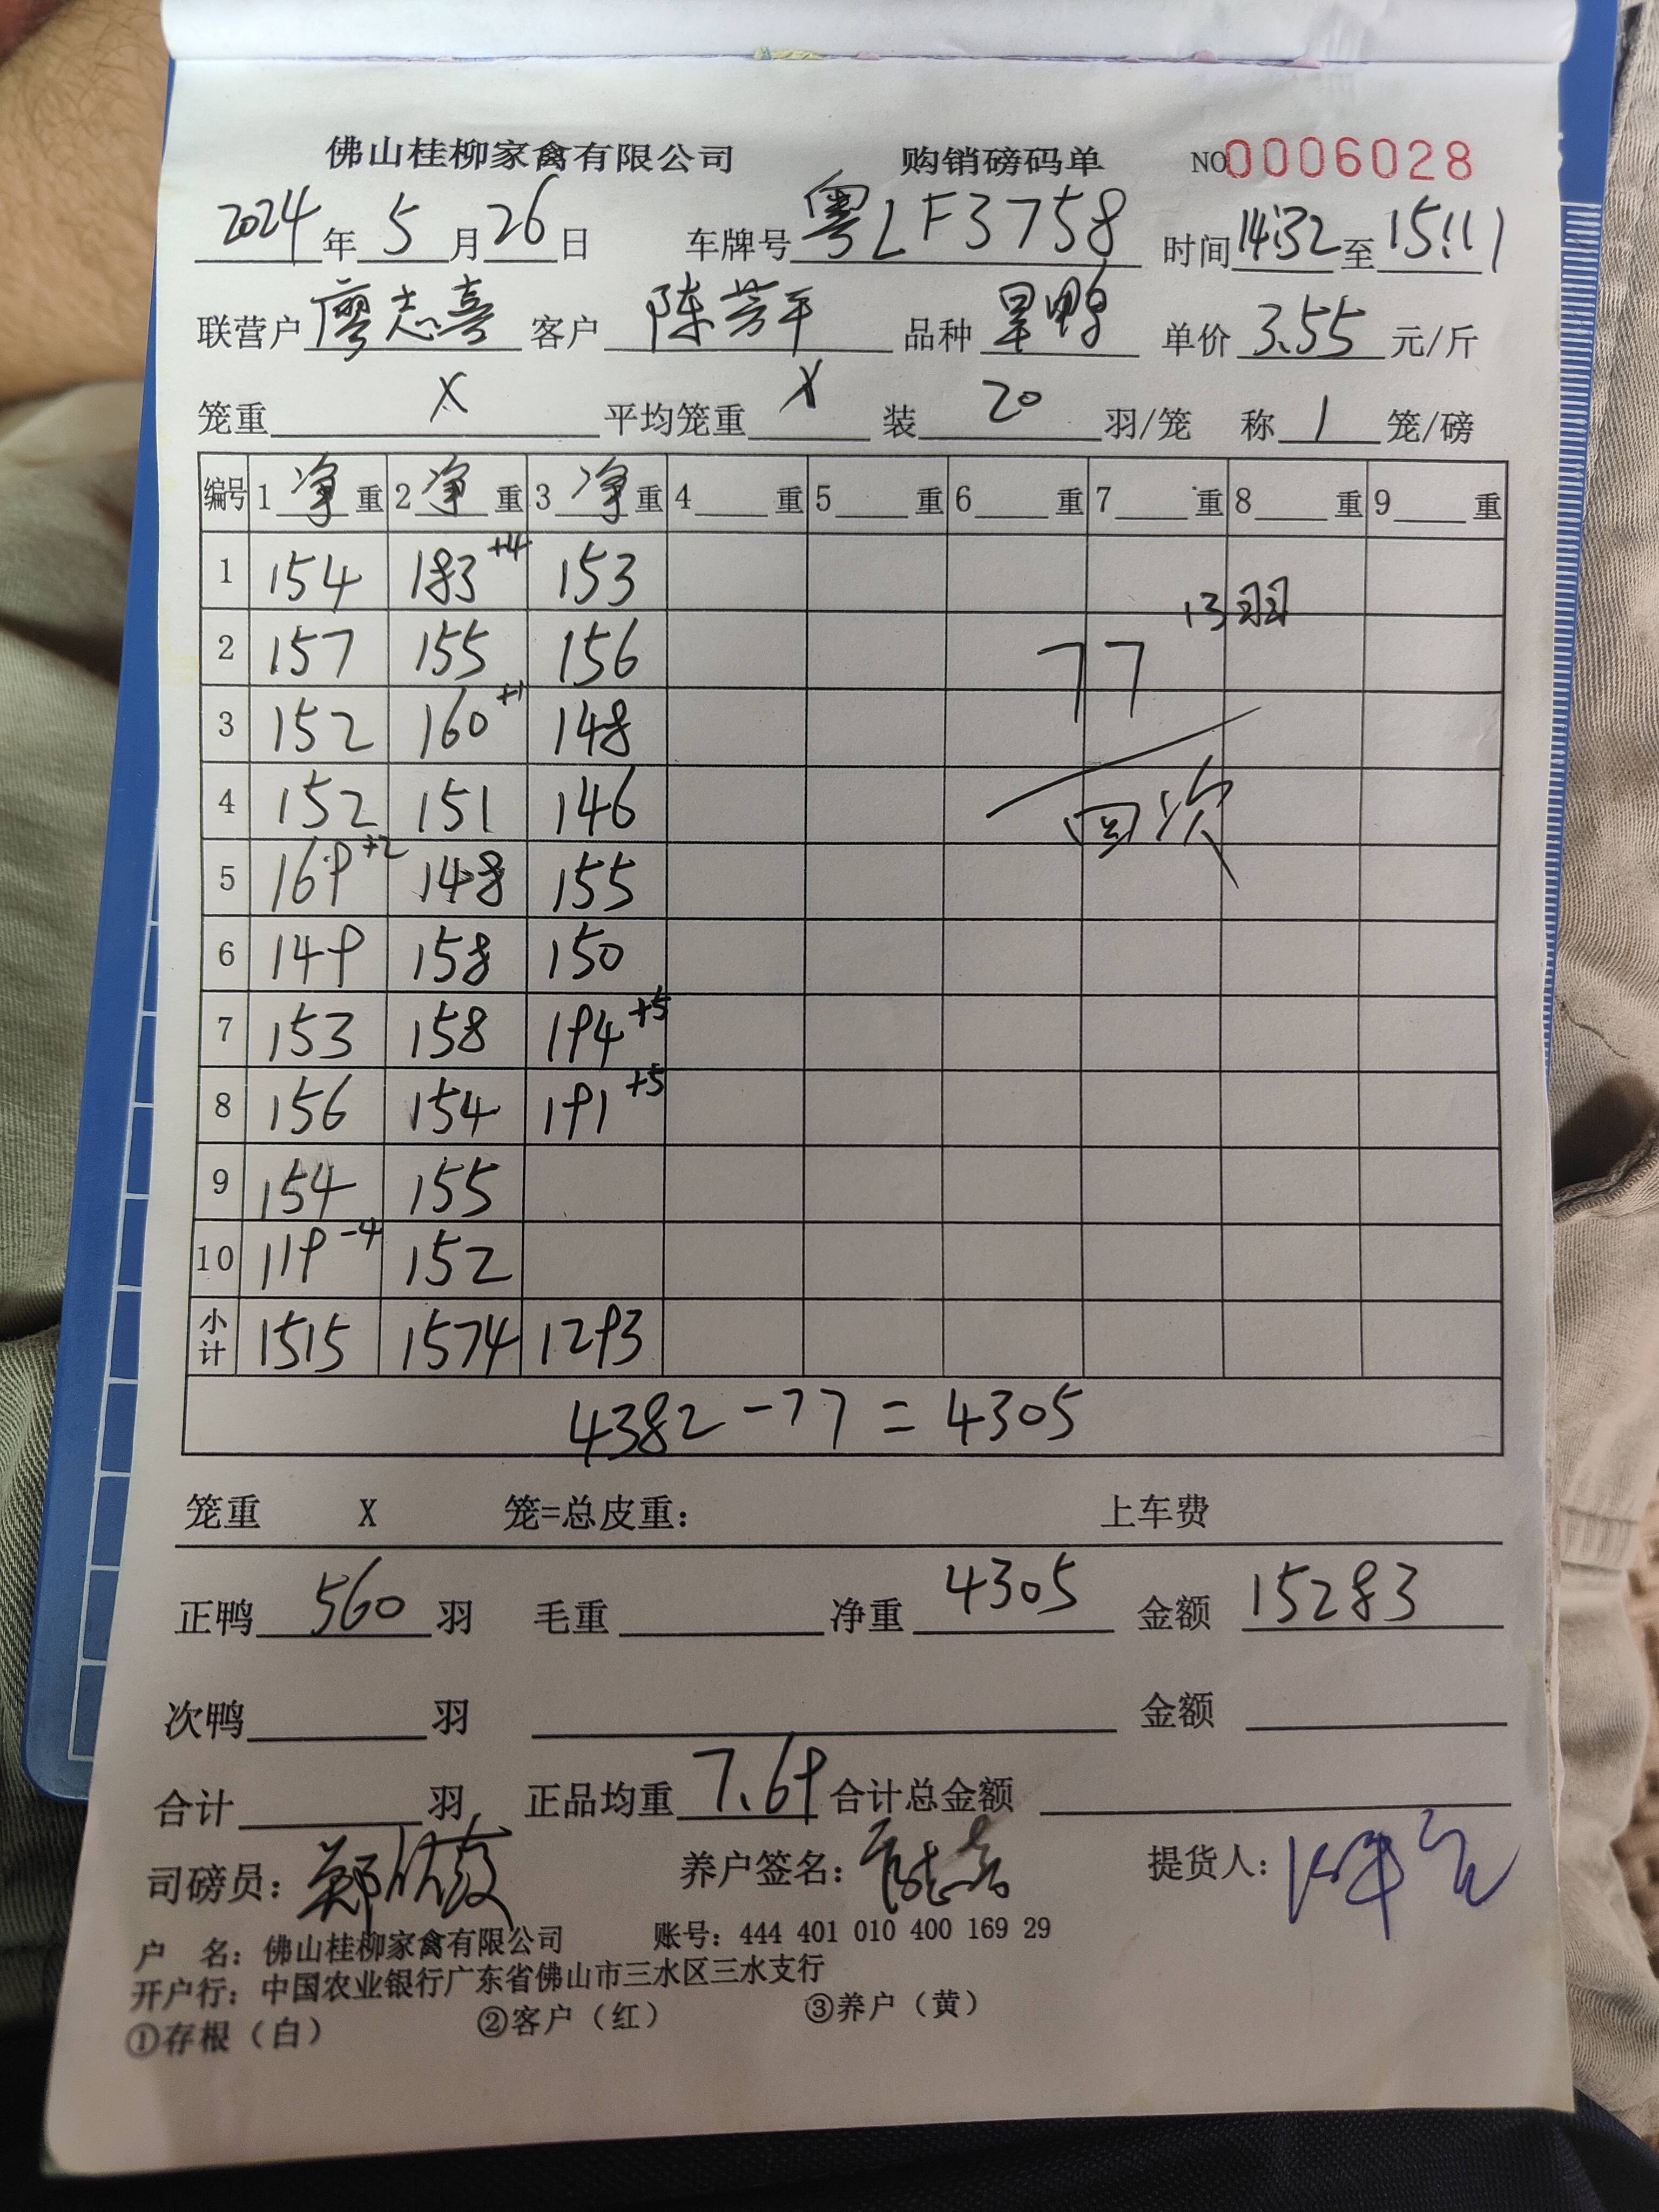 佛山桂柳家禽有限公司 购销磅码单 NO0006028
2024年5月26日 车牌号粤LF3758 时间14:32至15:11
联营户廖志喜 客户陈芳平 品种旱鸭 单价3.55元/斤
笼重X 平均笼重X 装20羽/笼 称1笼/磅
编号 1净重 2净重 3净重 4重 5重 6重 7重 8重 9重
1 154 183+4 153
13羽
2 157 155 156 77
3 152 160+1 148
4 152 151 146 回次
5 169+2 148 155
6 149 158 150
7 153 158 194+5
8 156 154 191+5
9 154 155
10 119-4 152
小计 1515 1574 1293
4382-77=4305
笼重 X 笼=总皮重： 上车费
正鸭560羽 毛重 净重4305 金额15283
次鸭 羽 金额
合计 羽 正品均重7.69 合计总金额
司磅员：郑 养户签名： 提货人：
户 名：佛山桂柳家禽有限公司 账号：444 401 010 400 169 29
开户行：中国农业银行广东省佛山市三水区三水支行
①存根（白） ②客户（红） ③养户（黄）